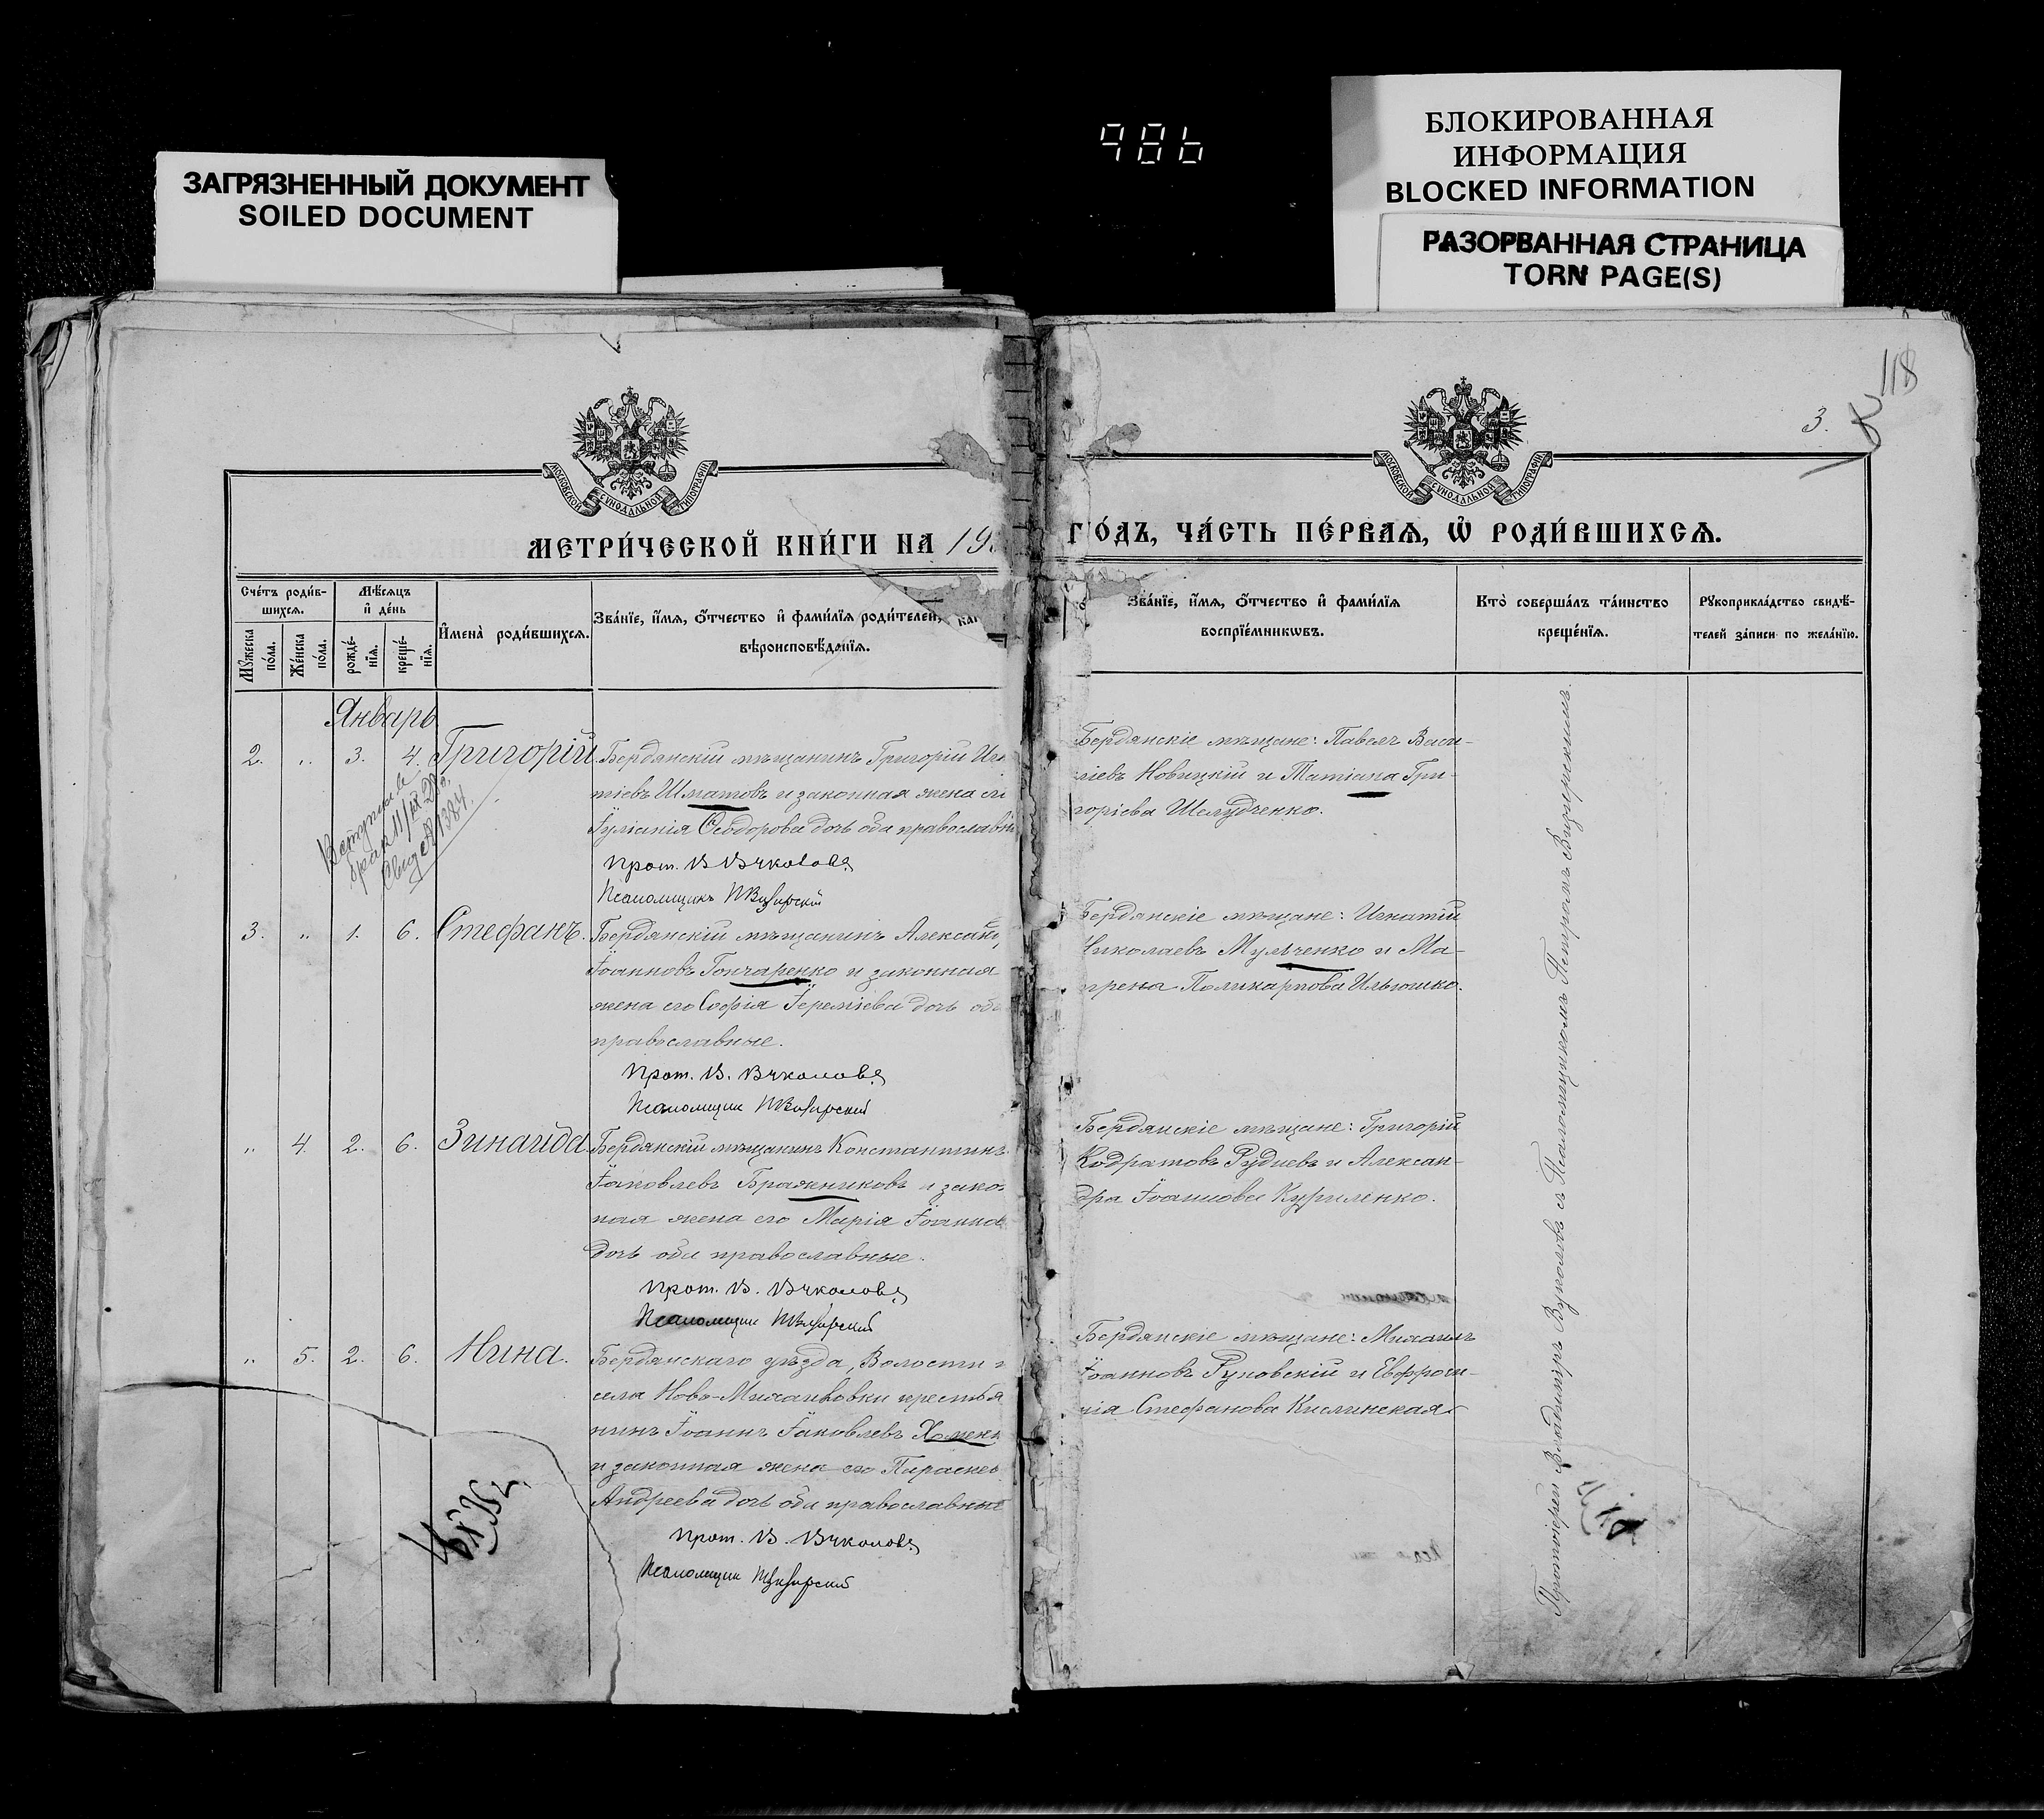 986
ЗАГРЯЗНЕННЫЙ ДОКУМЕНТ
SOILED DOCUMENT
БЛОКИРОВАННАЯ
ИНФОРМАЦИЯ
BLOCKED INFORMATION
РАЗОРВАННАЯ СТРАНИЦА
TORN PAGE(S)
118
3.
МОСКОВСКОЙ СѴНОДАЛЬНОЙ ТИПОГРАФІИ
МОСКОВСКОЙ СѴНОДАЛЬНОЙ ТИПОГРАФІИ
МЕТРИ́ЧЕСКОЙ КНИ́ГИ НА 19
ГО́ДЪ, ЧА́СТЬ ПЕ́РВАѦ, Ѡ҆ РОДИ́ВШИХСѦ.
Сче́тъ роди́в-
шихсѧ.
Мꙋ́жеска по́ла.
Же́нска по́ла.
Мѣ́сѧцъ
и҆ де́нь
рожде́-
нїѧ.
креще́-
нїѧ.
И҆мена̀ роди́вшихсѧ.
Зва́нїе, и҆́мѧ, ѻ҆́тчество и҆ фами́лїѧ роди́телей,
вѣроисповѣ́данїѧ.
Зва́нїе, и҆́мѧ, ѻ҆́тчество и҆ фами́лїѧ
воспрїе́мникѡвъ.
Кто̀ соверша́лъ та́инство
креще́нїѧ.
Рꙋкоприкла́дство свидѣ́-
телей за́писи по жела́нїю.
Январь
2. „ 3. 4. Григорій. Бердянскій мѣщанинъ Григорій Игн
тіевъ Шматовъ и законная жена его
Іуліанія Ѳеодорова дочь оба православн
Прот. В Вуколовъ
Псаломщикъ ПВизирскій
Вступил в
брак 11/IX 29 г.
Свид № 1384
Бердянскіе мѣщане: Павелъ Васи-
ліевъ Новицкій и Татіана Гри-
горіева Шелудченко.
3. „ 1. 6. Стефанъ. Бердянскій мѣщанинъ Александ
Іоанновъ Гончаренко и законная
жена его Софія Іереміева дочь оба
православные.
Прот. В. Вуколовъ
Псаломщик ПВизирский
Бердянскіе мѣщане: Игнатій
Николаевъ Мульченко и Ма-
трена Поликарпова Ильюшко.
„ 4. 2. 6. Зинаида. Бердянскій мѣщанинъ Константинъ
Іаковлевъ Бражниковъ и закон
ная жена его Марія Іоанно
дочь оба православные.
Прот. В. Вуколовъ
Псаломщик ПВизирский
Бердянскіе мѣщане: Григорій
Кодратовъ Рудневъ и Алексан-
дра Іоаннова Куриленко.
„ 5. 2. 6. Нина. Бердянскаго уѣзда, Волости и
села Ново-Михайловки крестья
нинъ Іоаннъ Іаковлевъ Хоменк
и законная жена его Параскев
Андреева дочь оба православные
Прот. В. Вуколовъ
Псаломщик ПВизирский
Бердянскіе мѣщане: Михаилъ
Іоанновъ Руновскій и Евфроси-
нія Стефанова Кислинская
Протоіерей Владиміръ Вуколовъ съ Псаломщикомъ Петромъ Визирскимъ.